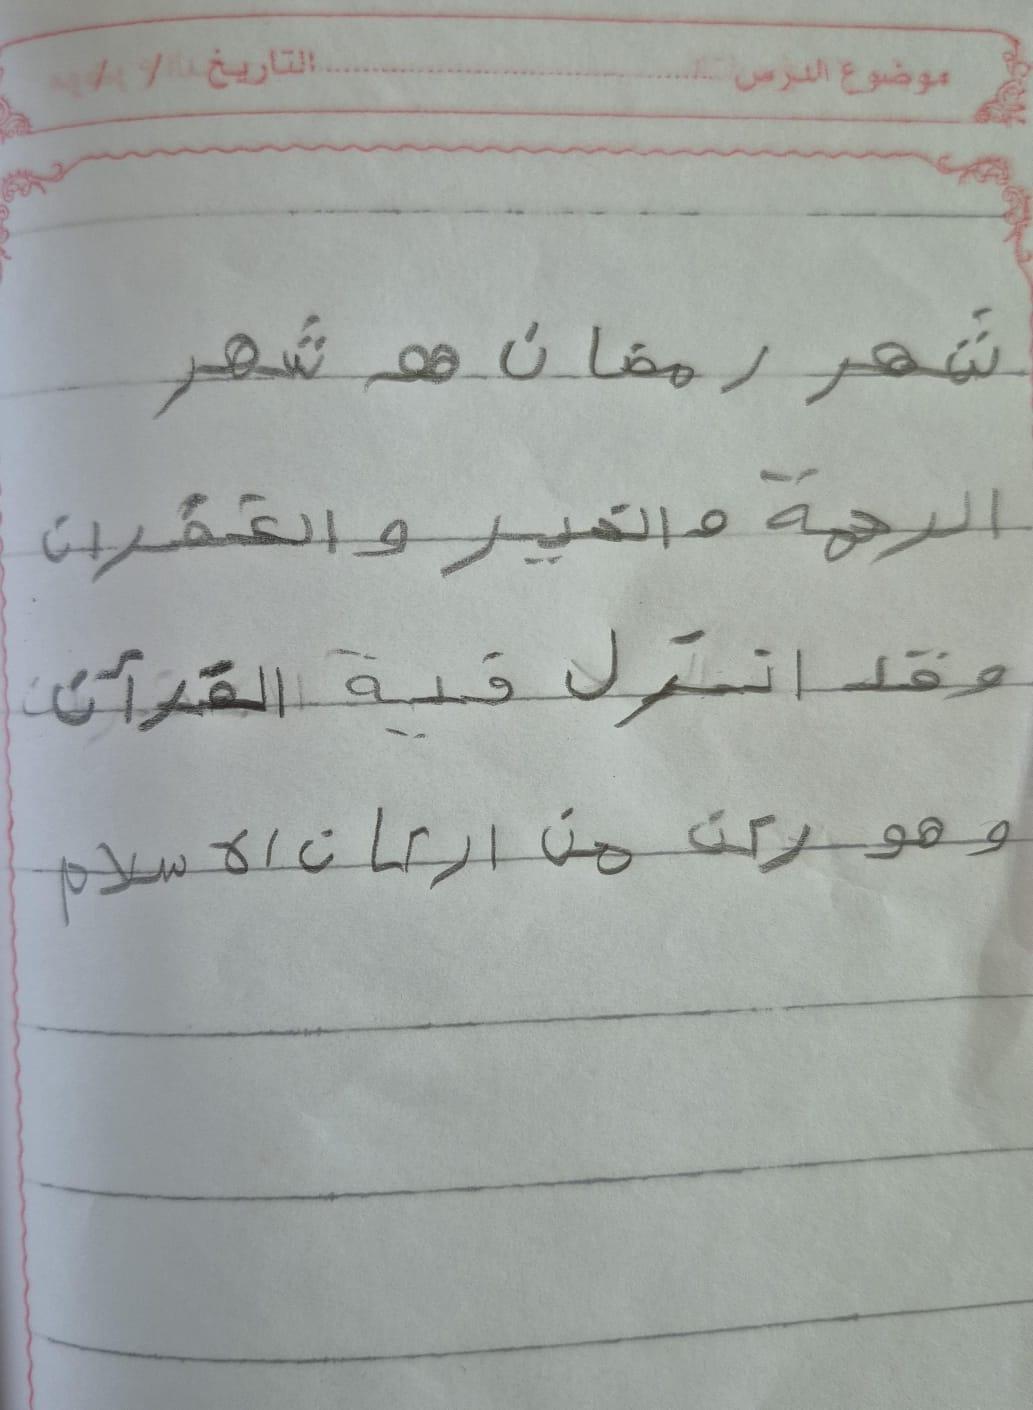 موضوع الدرس ........................ التاريخ / /
شهر رمضان هو شهر
الرحمة والخير والغفران
وقد انزل فية القرآن
وهو ركن من اركان الاسلام